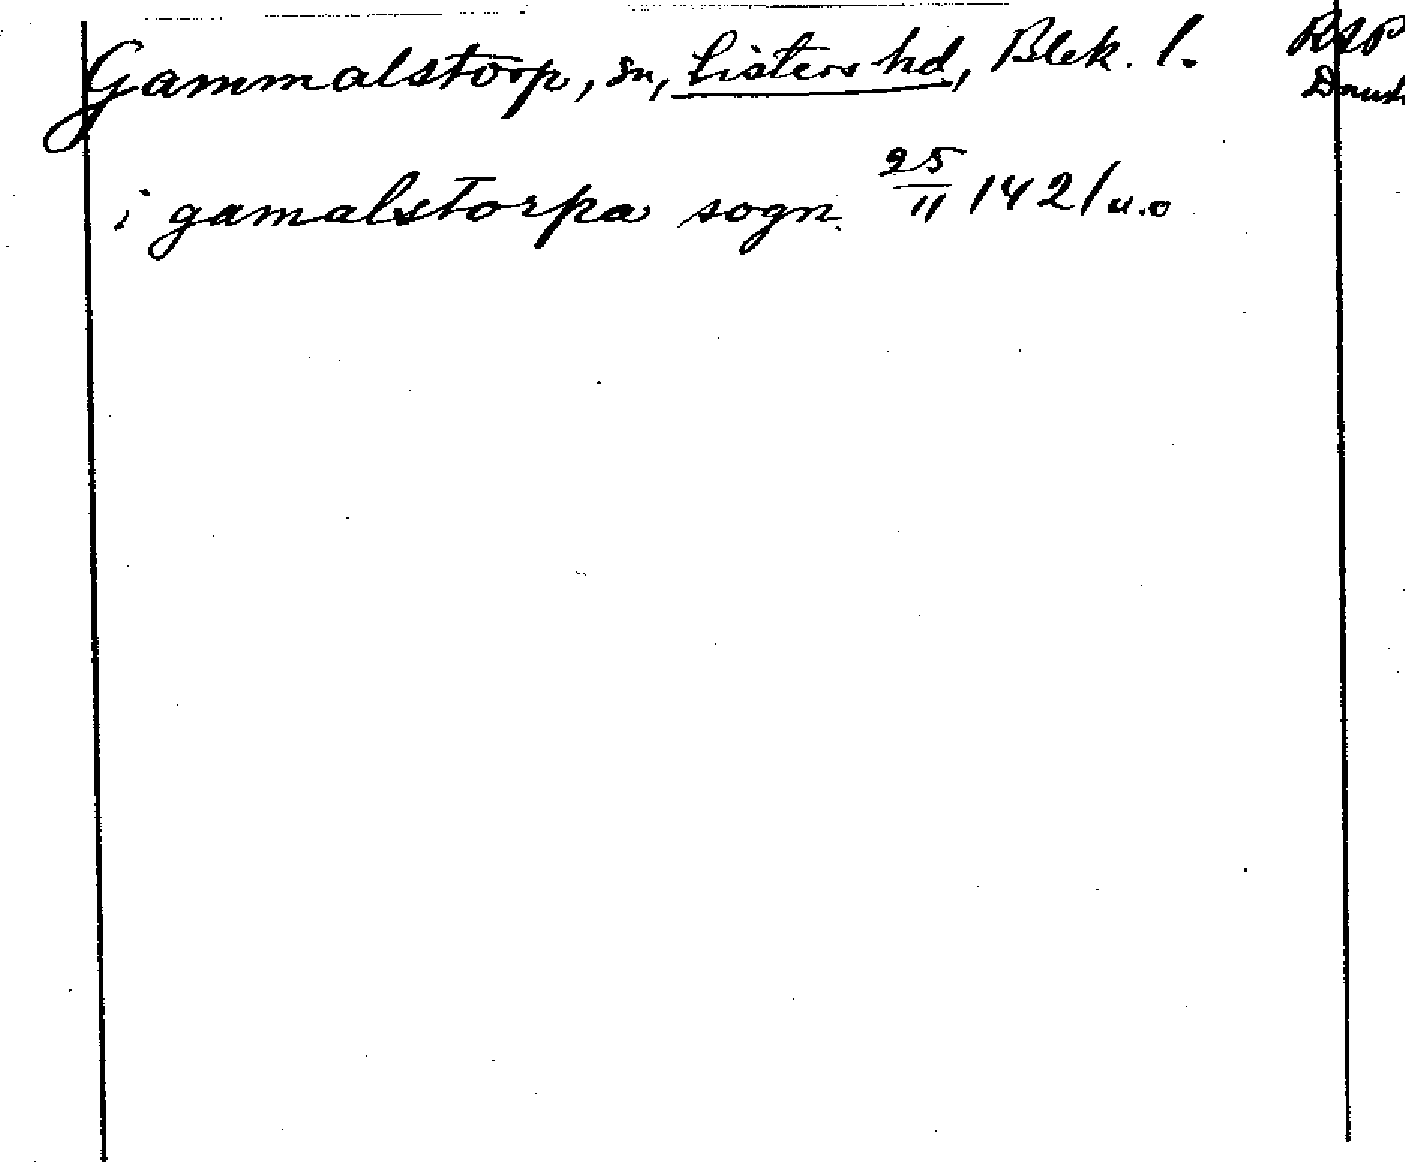 Gammalstorp, sn, Listers hd, Blek. l. RAP
i gamalstorpa sogn 25/11 1421 u.o